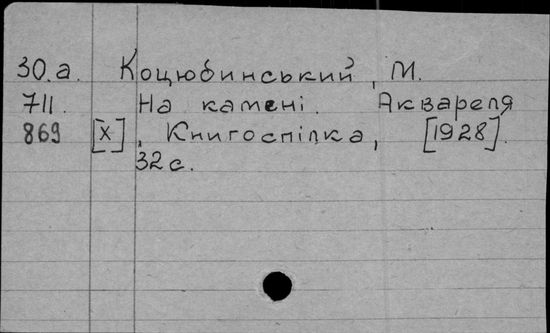 30.а. Коцюбинський, М.
711. На камені. Акварела
869 [Х], Книгоспілка, [1928].
32 с.